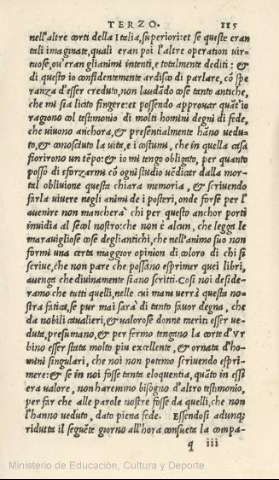 TERZO. 115
nell'altre corti della Italia, suꝑiori: et se queste eran
tali imaginate, quali eran poi l'altre operation uir=
tuose, ou' eran gli animi intenti, e totalmente dediti: &
di questo io confidentemente ardisco di parlare, cō spe
ranza d'esser creduto, non laudādo cose tanto antiche,
che mi sia licito fingere: et possendo approuar quāt'io
ragiono col testimonio di molti homini degni di fede,
che uiuono anchora, & presentialmente hāno uedu=
to, & conosciuto la uita, e i costumi, che in quella casa
fiorirono un tēpo: & io mi tengo obligato, per quanto
posso di sforzarmi cō ogni studio uēdicar dalla mor=
tal obliuione questa chiara memoria, & scriuendo
farla uiuere negli animi de i posteri, onde forse per l'
auenire non mancherà chi per questo anchor porti
inuidia al secol nostro: che non è alcun, che legga le
marauigliose cose degli antichi, che nell'animo suo non
formi una certa maggior opinion di coloro di chi si
scriue, che non pare che possano esprimer quei libri,
auenga che diuinamente siano scritti. Cosi noi deside=
ramo che tutti quelli, nelle cui man uerrà questa no=
stra fatica, se pur mai sarà di tanto fauor degna, che
da nobili caualieri, & ualorose donne meriti esser ue=
duta, presumano, & per fermo tengano la corte d'Vr
bino esser stata molto piu excellente, & ornata d'ho=
mini singulari, che noi non potemo scriuendo espri=
mere: & se in noi fosse tanta eloquentia, quāto in essi
era ualore, non haremmo bisogno d'altro testimonio,
per far che alle parole nostre fosse da quelli, che non
l'hanno ueduto, dato piena fede. Essendosi adunq;
ridutta il seguēte giorno all'hora consueta la compa=
q iii
Ministerio de Educación, Cultura y Deporte